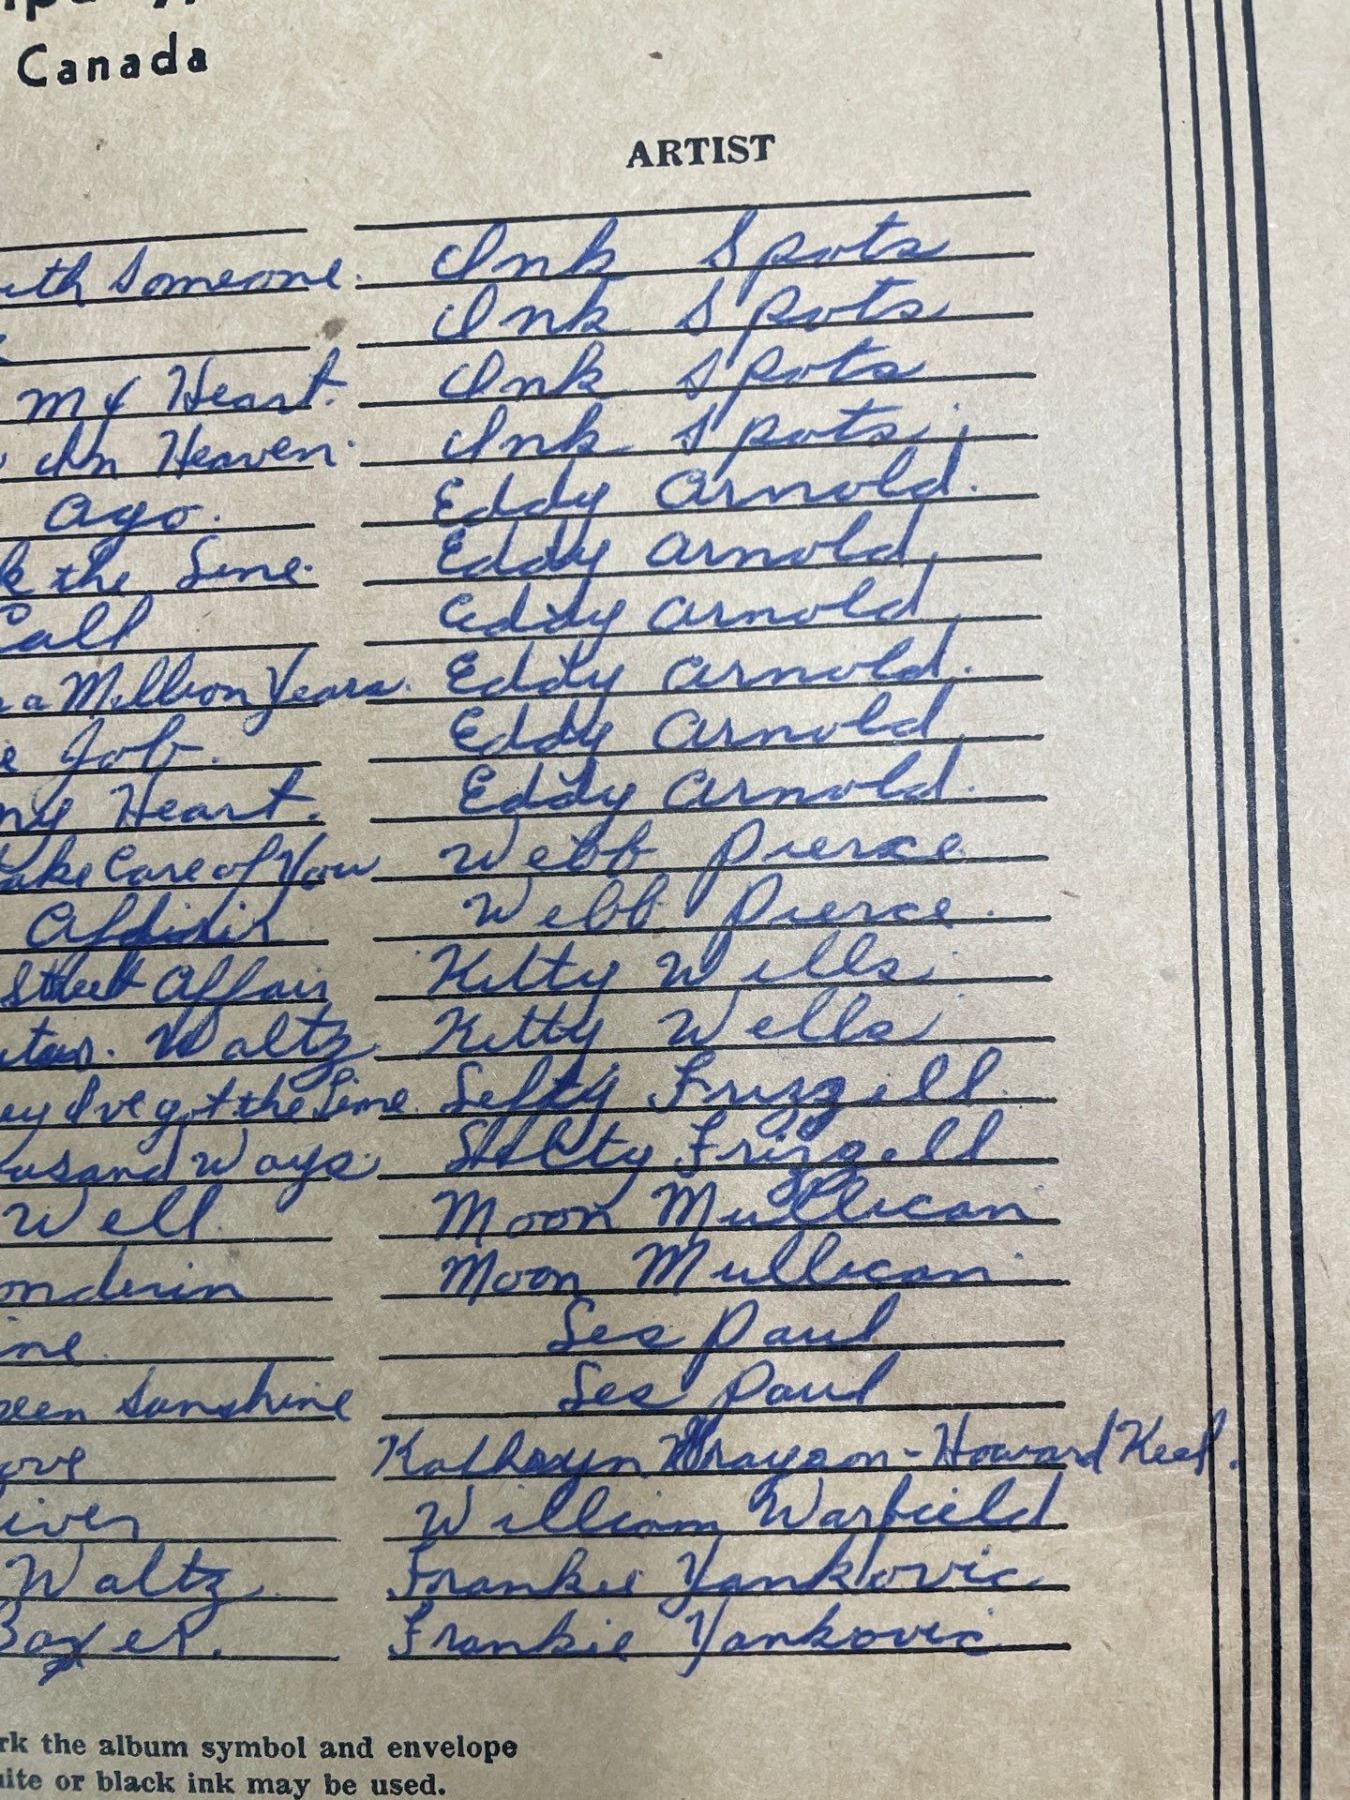 Canada
ARTIST
Someone. Ink Spots
Ink Spots
My Heart. Ink Spots
In Heaven. Ink Spots
Ago. Eddy Arnold.
the Line. Eddy Arnold.
Call Eddy Arnold.
a Million Years. Eddy Arnold.
Job. Eddy Arnold.
my Heart. Eddy Arnold.
Take Care of You Webb Pierce.
Webb Pierce.
Street Affair Kitty Wells.
Waltz. Kitty Wells
I've got the Time. Lefty Frizzell.
Ways. Lefty Frizzell
Well. Moon Mullican
onderin Moon Mullican.
ine. Les Paul
een Sunshine Les Paul
ove Kathryn Grayson - Howard Keel.
iver William Warfield
Waltz. Frankie Yankovic
Boxer. Frankie Yankovic
rk the album symbol and envelope
ite or black ink may be used.